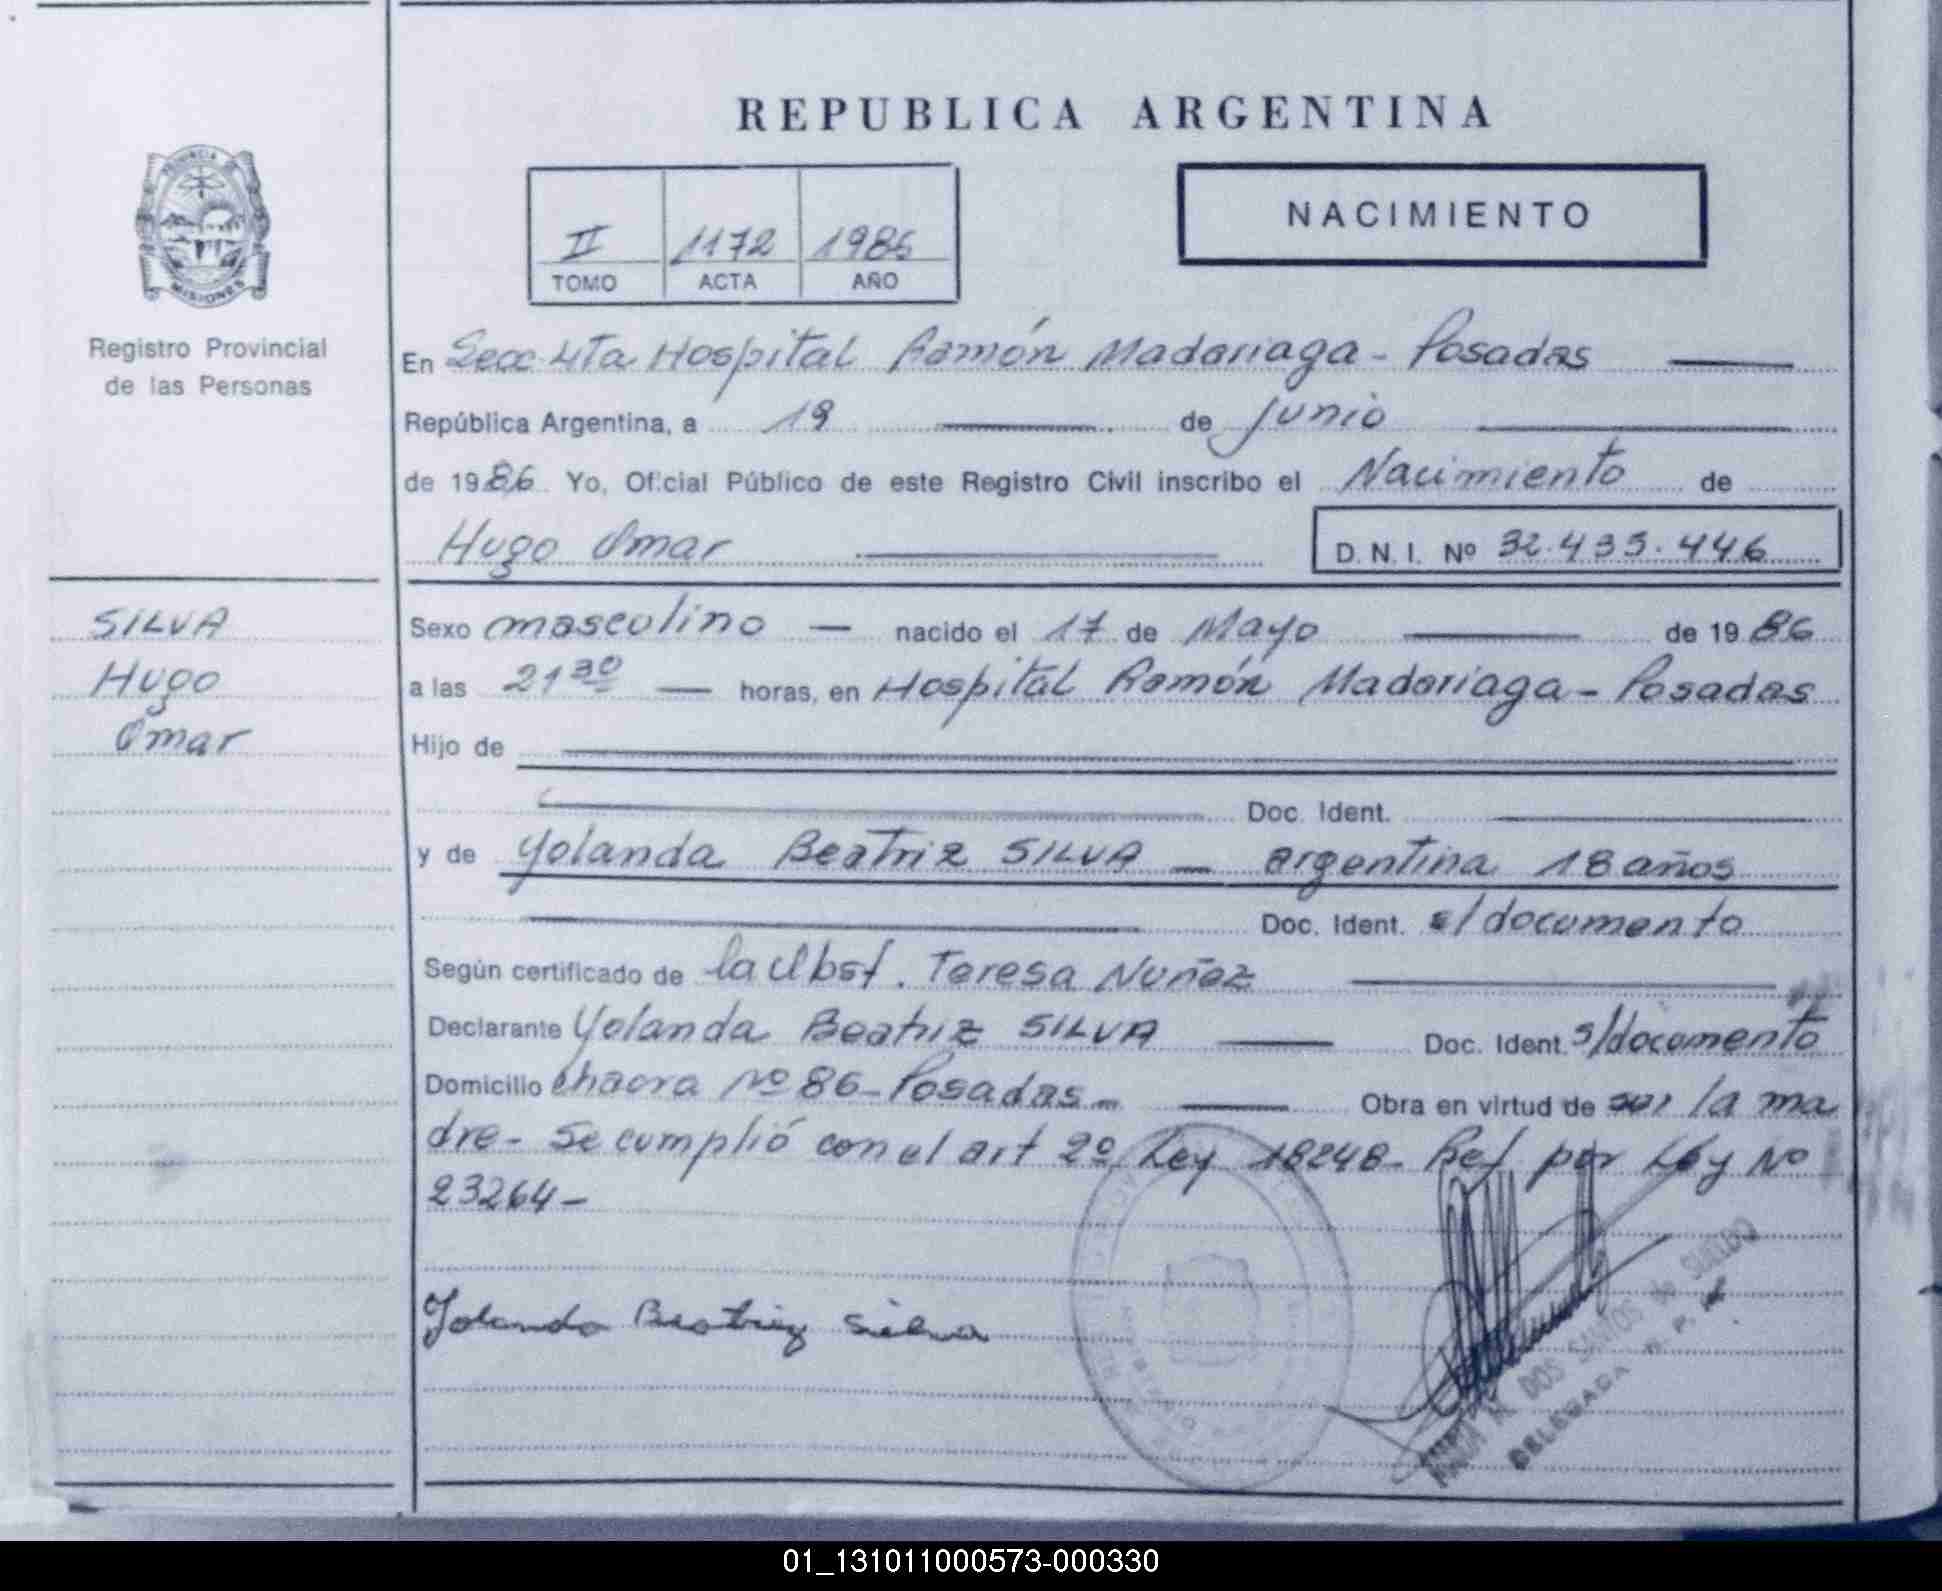 REPUBLICA ARGENTINA
PROVINCIA
MISIONES
Registro Provincial
de las Personas
II 1172 1986
TOMO ACTA AÑO
NACIMIENTO
En Secc 4ta Hospital Ramón Madariaga - Posadas
República Argentina, a 19 de junio
de 1986 Yo, Oficial Público de este Registro Civil inscribo el Nacimiento de
Hugo Omar D. N. I. Nº 32.435.446
SILVA
Hugo
Omar
Sexo masculino — nacido el 17 de Mayo de 1986
a las 21 30 — horas, en Hospital Ramón Madariaga - Posadas
Hijo de
Doc. Ident.
y de Yolanda Beatriz SILVA — argentina 18 años
Doc. Ident. s/documento
Según certificado de la Obst. Teresa Nuñez
Declarante Yolanda Beatriz SILVA Doc. Ident. s/documento
Domicilio chacra Nº 86 - Posadas - Obra en virtud de ser la ma
dre - Se cumplió con el art 2º Ley 18248 - Ref por Ley Nº
23264 -
Yolanda Beatriz Silva
DOS SANTOS de SUELDO
DELEGADA R. P.
01_131011000573-000330